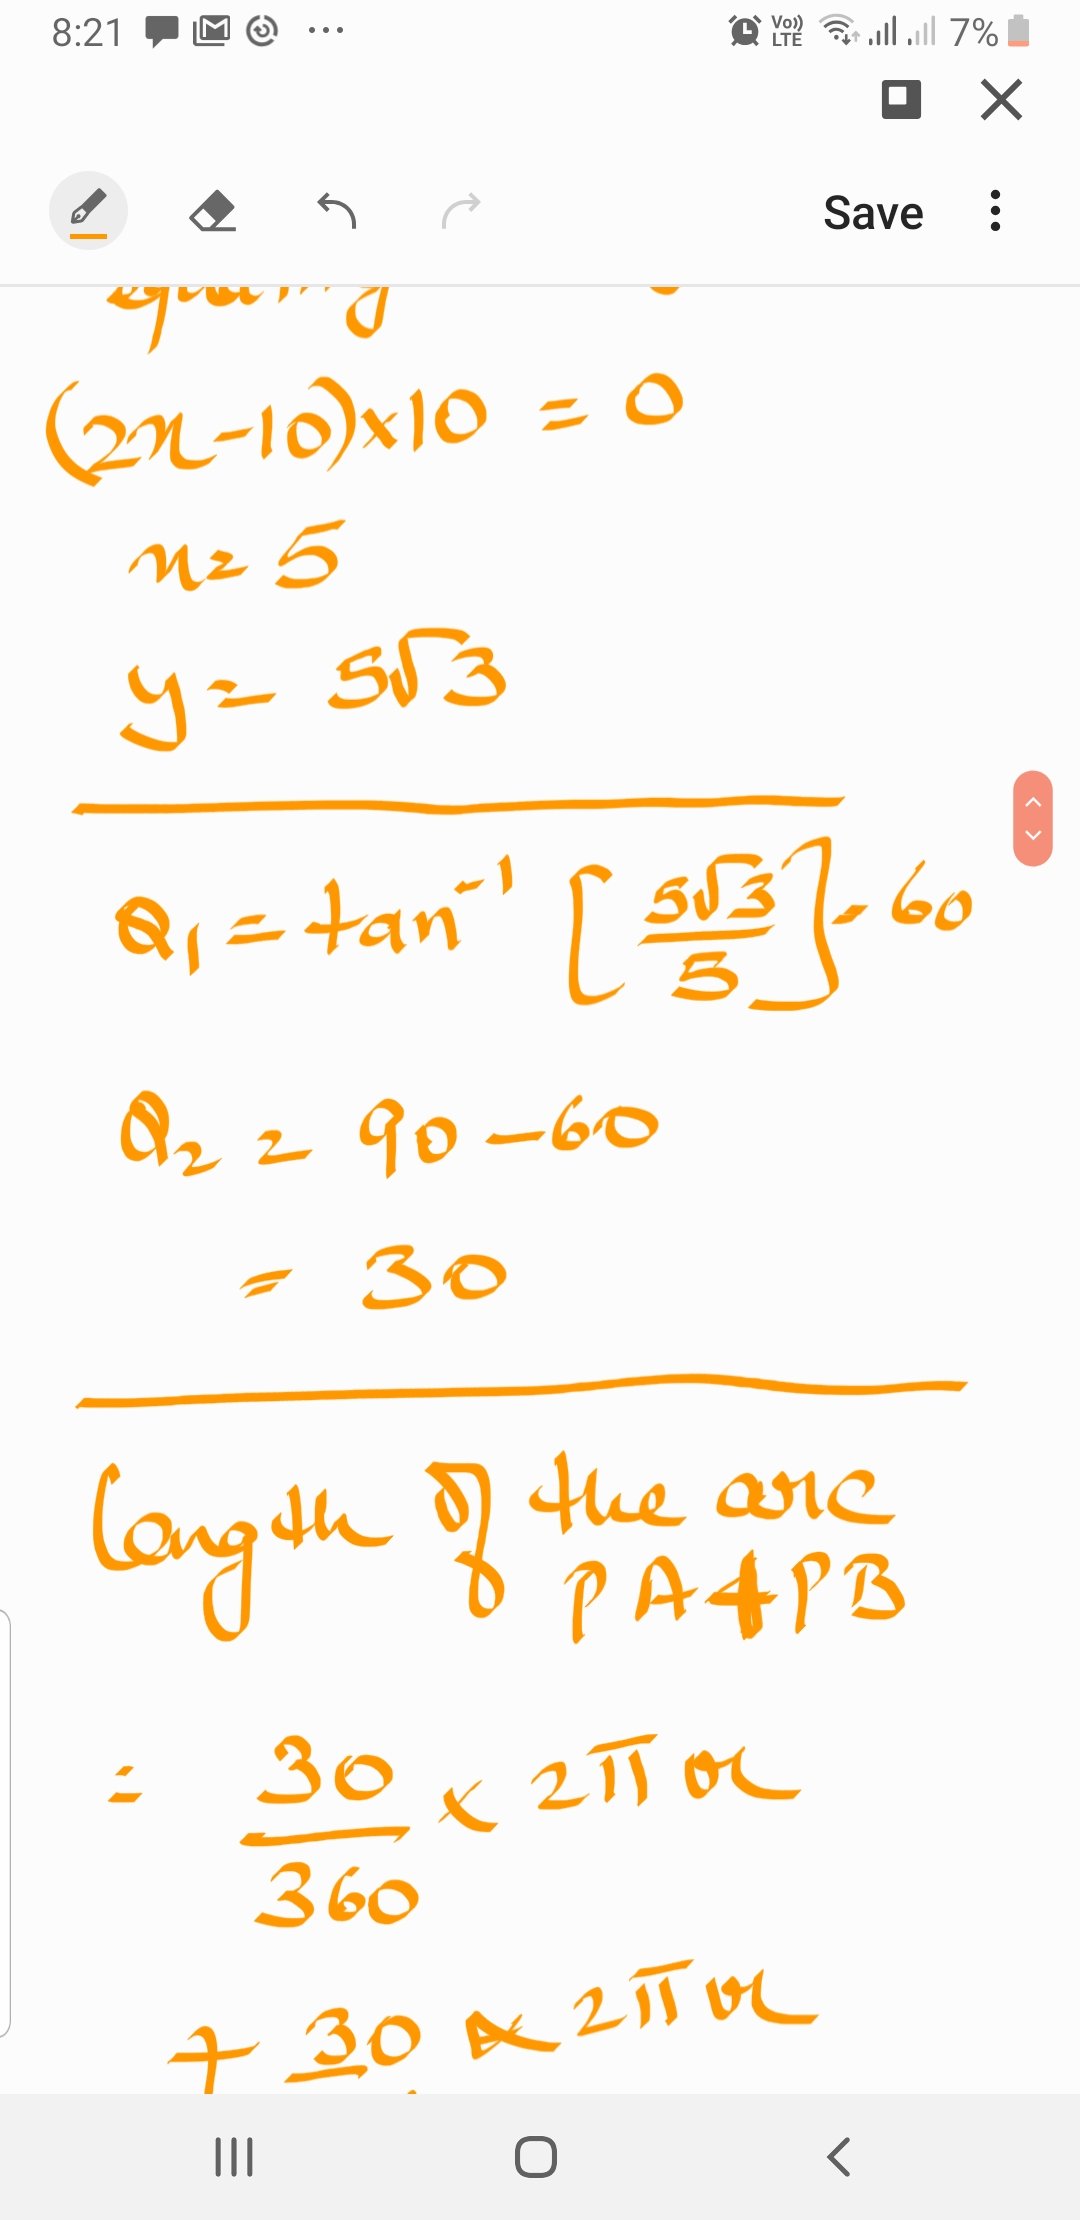 8:21 Vo)) LTE 7%
Save
(2x-10)x10 = 0
x = 5
y = 5√3
θ1 = tan⁻¹ [5√3/5] = 60
θ2 = 90-60
= 30
length of the arc
PA+PB
= 30/360 x 2πr
+ 30 x 2πr